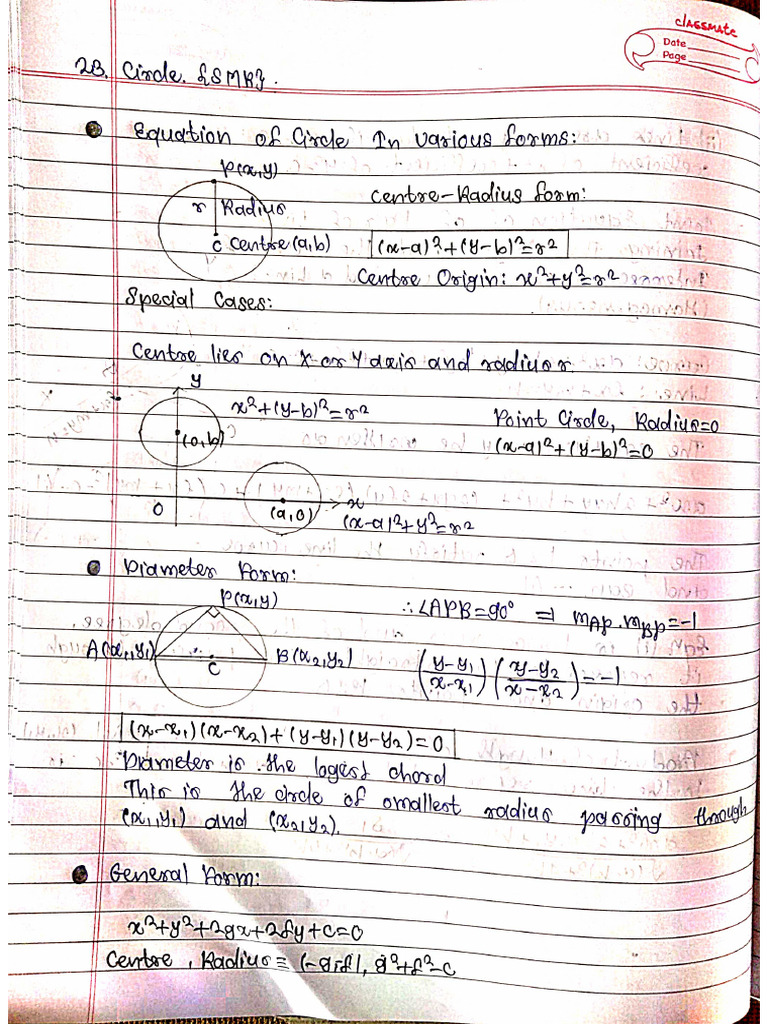 classmate
Date
Page
23. Circle. {SMR}.
Equation of Circle In various forms:
P(x,y)
Centre-Radius form:
r Radius
C Centre(a,b) (x-a)²+(y-b)²=r²
Centre Origin: x²+y²=r²
Special Cases:
Centre lies on X or Y axis and radius r.
y
x²+(y-b)²=r² Point Circle, Radius=0
(0,b) (x-a)²+(y-b)²=0
O (a,0) x
(x-a)²+y²=r²
Diameter Form:
P(x,y) ∴ ∠APB=90° ⇒ mAP.mBP=-1
A(x₁,y₁) C B(x₂,y₂) (y-y₁/x-x₁)(y-y₂/x-x₂)=-1
(x-x₁)(x-x₂)+(y-y₁)(y-y₂)=0
Diameter is the logest chord
This is the circle of smallest radius passing through
(x₁,y₁) and (x₂,y₂).
General Form:
x²+y²+2gx+2fy+c=0
Centre, Radius≡ (-g,-f), g²+f²-c